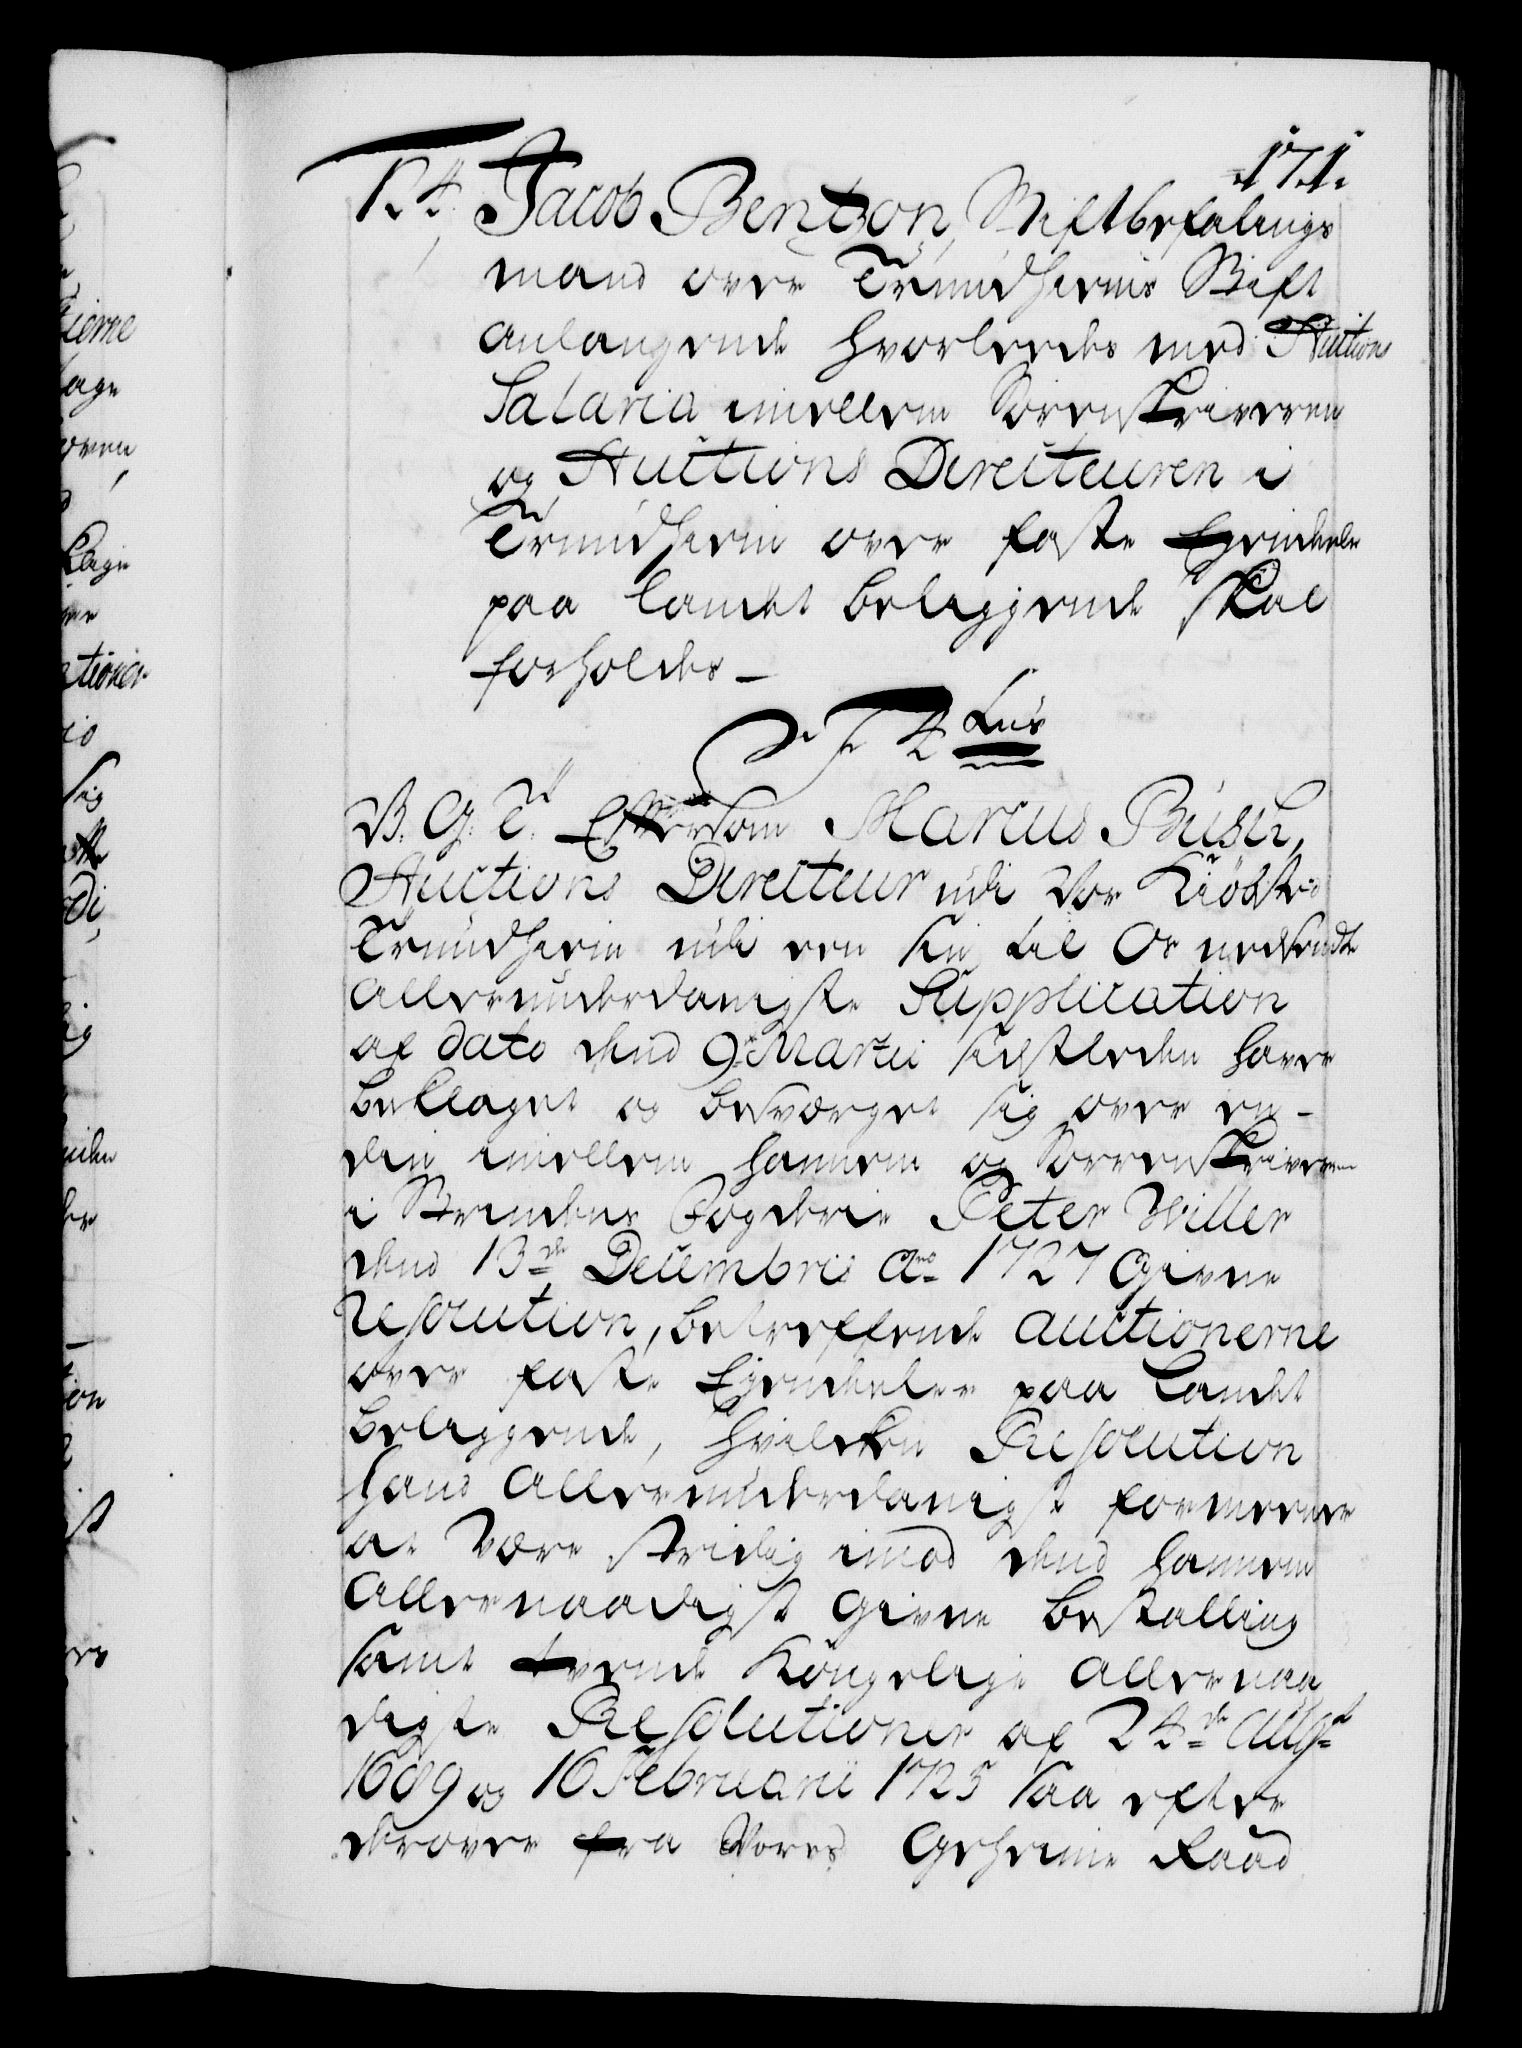 171.
Til Jacob Bentzon, Stiftbefalings
mand over Trundhiems Stift
anlangende hvorledes med Auctions
Salaria imellem Sorenskriveren
og Auctions Directeuren i
Trundhiem over faste Eyendeele
paa Landet beliggende skal
forholdes_
F 4 Lus
V. G. T. Eftersom Marcus Busch,
Auctions Directeur udi Vor Kiöbsted
Trundhiem udi een sin til Os nedsendte
allerunderdanigste Supplication
af dato dend 9. Martii sidstleden haver
beklaget og besværget sig over en-
deel imellem hannem og Sorrenskriveren
i Strindens Fogderie Peter Willer
dend 13de Decembris Ao 1727 givne
resolution, betreffende auctionerne
over faste Eyendeler paa Landet
beliggende, hvilcken Resolution
hand allerunderdanigst formeener
at være stridig imod dend hannem
allernaadigst givne bestalling
samt tvende Kongelige allernaa
digste Resolutioner af 24de Augst
1689 og 16 Februarii 1725 saa efter
derover fra Vores Geheime Raad